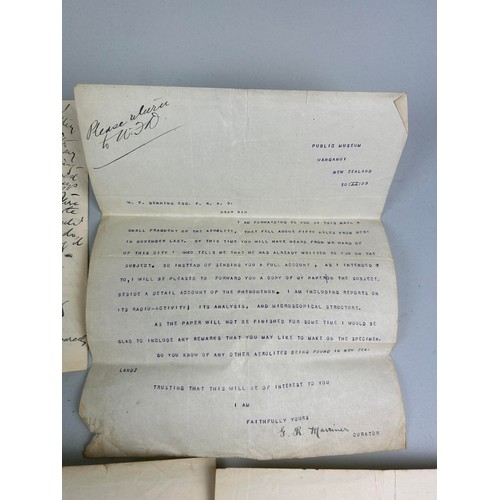 Please return
to W.F.D
PUBLIC MUSEUM
WANGANUI
NEW ZEALAND
W. F. DENNING ESQ. F. R. A. S.
DEAR SIR
I AM FORWARDING TO YOU BY THIS MAIL A
SMALL FRAGMENT OF THE AEROLITE, THAT FELL ABOUT FIFTY MILES FROM HERE
IN NOVEMBER LAST. OF THIS TIME YOU WILL HAVE HEARD FROM MR WARD OF
OF THIS CITY WHO TELLS ME THAT HE HAS ALREADY WRITTEN TO YOU ON THE
SUBJECT. SO INSTEAD OF SENDING YOU A FULL ACCOUNT, AS I INTENDED
TO, I WILL BE PLEASED TO FORWARD YOU A COPY OF MY PAPER ON THE SUBJECT.
BESIDE A DETAIL ACCOUNT OF THE PHENOMENON. I AM INCLUDING REPORTS ON
ITS RADIO-ACTIVITY; ITS ANALYSIS, AND MICROSCOPICAL STRUCTURE.
AS THE PAPER WILL NOT BE FINISHED FOR SOME TIME I WOULD BE
GLAD TO INCLUDE ANY REMARKS THAT YOU MAY LIKE TO MAKE ON THE SPECIMEN.
DO YOU KNOW OF ANY OTHER AEROLITES BEING FOUND IN NEW ZEA-
LAND?
TRUSTING THAT THIS WILL BE OF INTEREST TO YOU
I AM
FAITHFULLY YOURS
G. R. Marriner
CURATOR